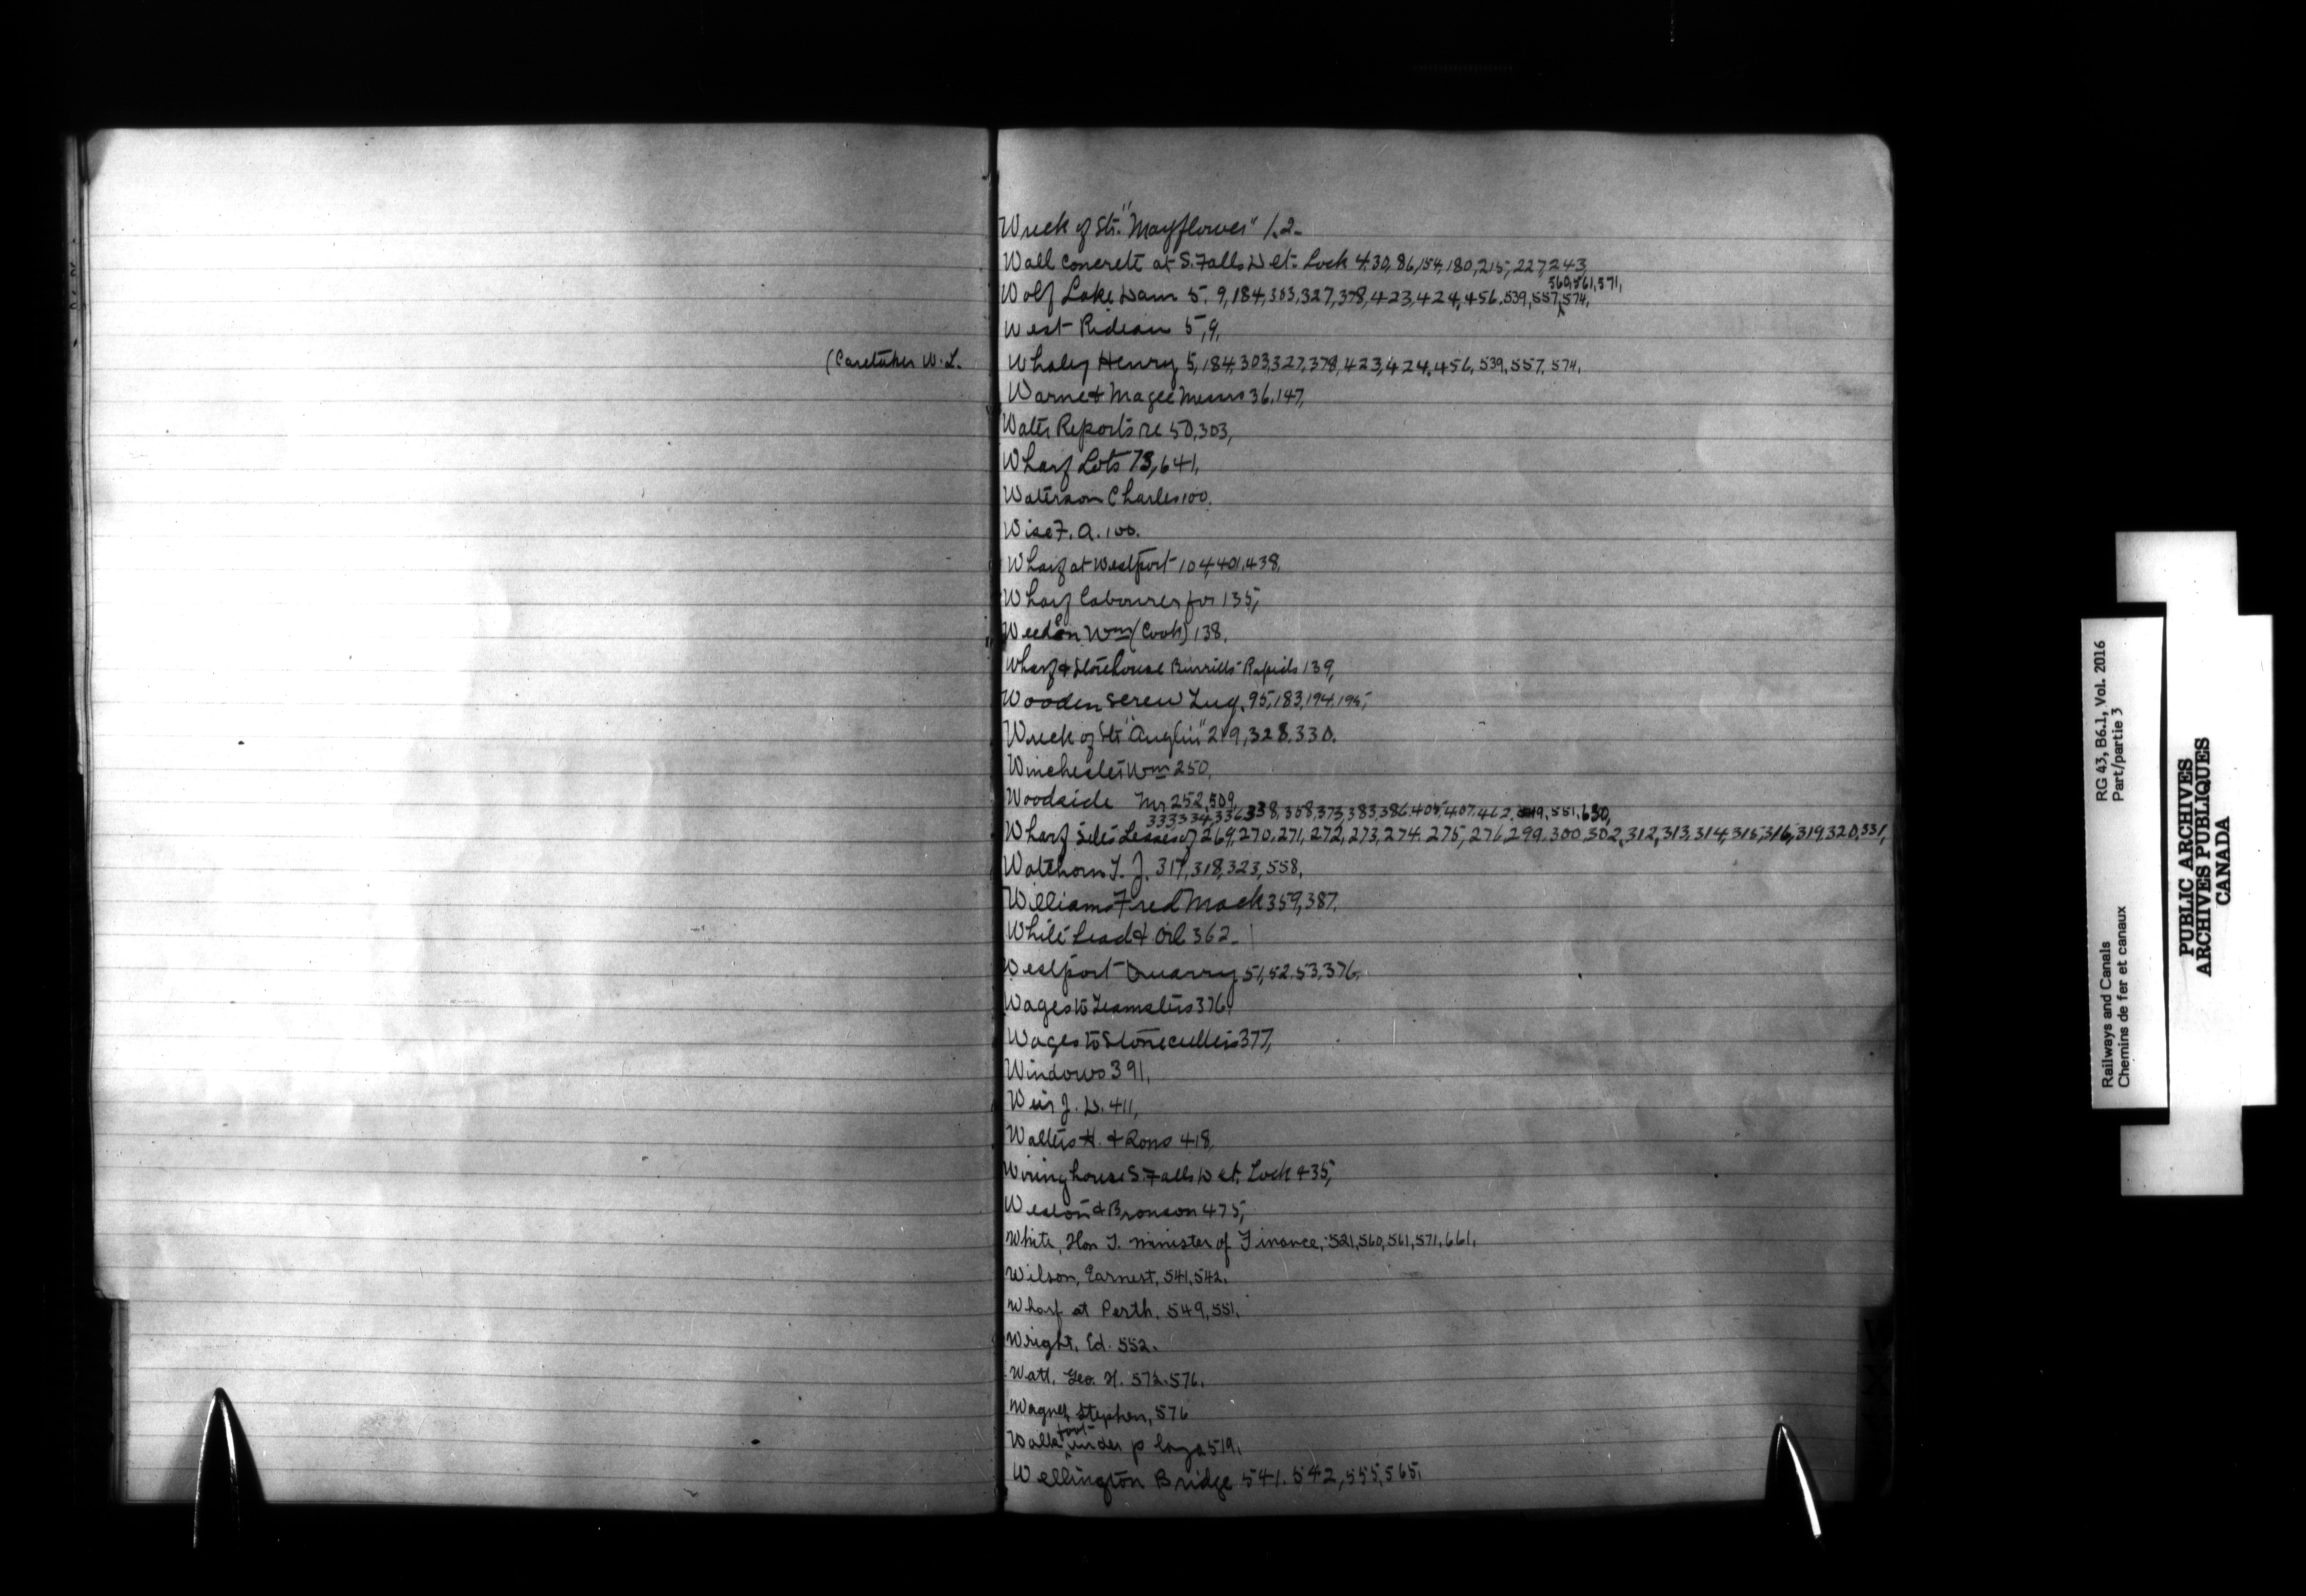 Wreck of Str. "Mayflower" 1.2.
Wall Concrete at S. Falls Det. Lock 4,30,86,154,180,215,227,243,
560,561,571,
Wolf Lake Dam 5, 9,184,303,327,378,423,424,456,539,557,574,
West Rideau 5,9,
(Caretaker W. L. Whaley Henry 5,184,303,327,378,423,424,456,539,557,574,
Warne & Magee Messrs 36,147,
Water Reports re 50,303,
Wharf Lots 73,641,
Waterson Charles 100.
Wise F. A. 100.
Wharf at Westport 104,401,438,
Wharf labourer for 135,
Weedon Wm (Cook) 138,
Wharf & Storehouse Burritts Rapids 139,
Wooden Screw Tug, 95,183,194,195,
Wreck of Str "Anglin" 219,328,330.
Winchester Wm 250,
Woodside Mr 252,509,
333,334,336,338,358,373,383,386,405,407,462,549,551,630,
Wharf Sites Leases of 269,270,271,272,273,274,275,276,299,300,302,312,313,314,315,316,319,320,331,
Walthorn T. J. 317,318,323,558,
Williams Fred Mack 359,387,
White Lead & Oil 362.
Westport Quarry, 51,52,53,376,
Wages to Teamsters 376,
Wages to Stonecutters 377,
Windows 391,
Weir J. D. 411,
Walters H. & Sons 418,
Wiring house S. Falls Det. Lock 435,
Weston & Bronson 475,
White, Hon T. Minister of Finance, 521,560,561,571,661,
Wilson, Earnest, 541,542,
Wharf at Perth, 549,551,
Wright, Ed. 552.
Watt, Geo. H. 572,576,
Wagner, Stephen, 576
foot
Walk under p 519,
Wellington Bridge 541, 542,555,565,
Railways and Canals RG 43, B6.1, Vol. 2016
Chemins de fer et canaux Part/partie 3
PUBLIC ARCHIVES
ARCHIVES PUBLIQUES
CANADA